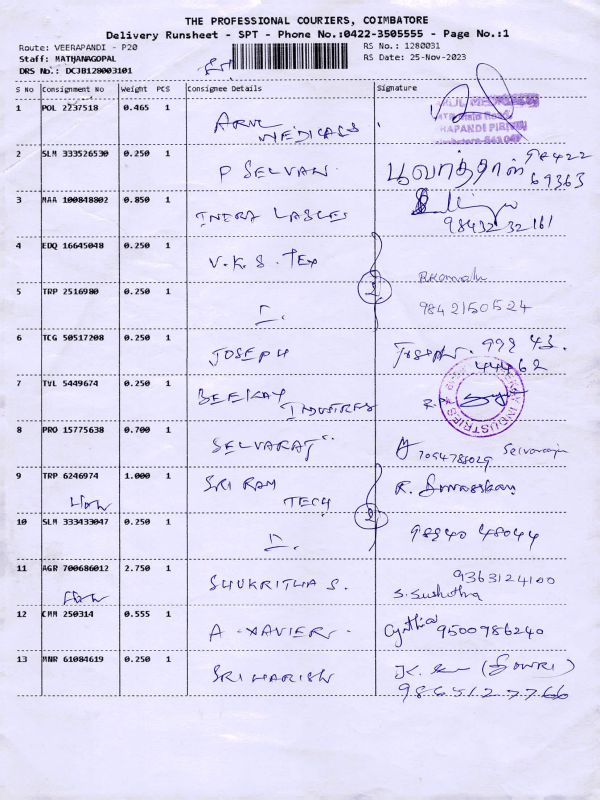 THE PROFESSIONAL COURIERS, COIMBATORE
Delivery Runsheet - SPT - Phone No.:0422-3505555 - Page No.:1
Route: VEERAPANDI - P20
RS No.: 1280031
Staff: MATHANAGOPAL
RS Date: 25-Nov-2023
DRS No.: DCJB128003101
S No Consignment No Weight PCS Consignee Details Signature
1 POL 2237518 0.465 1 ARUL MEDICALS
2 SLM 333526530 0.250 1 P SELVAN பூவாத்தாள் 98422
69363
3 MAA 100848802 0.850 1 INDRA LABLES
98432 32161
4 EDQ 16645048 0.250 1 V.K.S. TEX
5 TRP 2516980 0.250 1 2
9842150524
6 TCG 50517208 0.250 1 JOSEPH Joseph. 999 43.
44462
7 TVL 5449674 0.250 1 BEEKAY INDUSTRES
INDUSTRIES
8 PRO 15775638 0.700 1 SELVARAJ 7094783029 Selvaraju
9 TRP 6246974 1.000 1 SRI RAM TECH
10 SLM 333433047 0.250 1 2 98940 48044
11 AGR 700686012 2.750 1 SHUKRITHA S. 9363124100
S. Sushotha
12 CMM 250314 0.555 1 A. XAVIER. Cynthia 9500786240
13 MNR 61084619 0.250 1 SRI HARISH (GOWRI)
9865127766